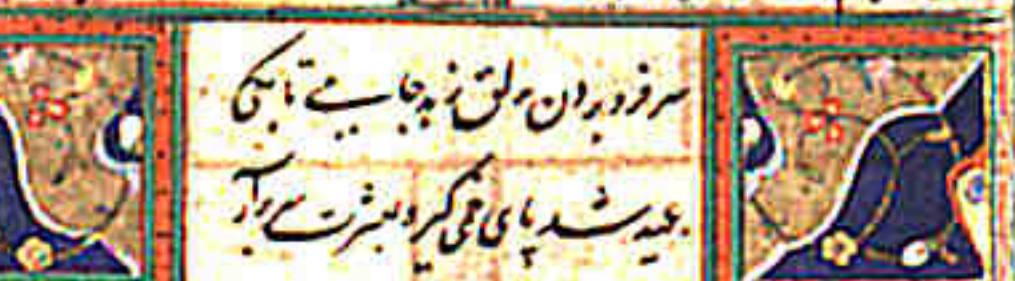 سر فرو بردن به دلق زهد جامی تا بکی
عید شد پای خمی گیر و بعشرت سر برآر